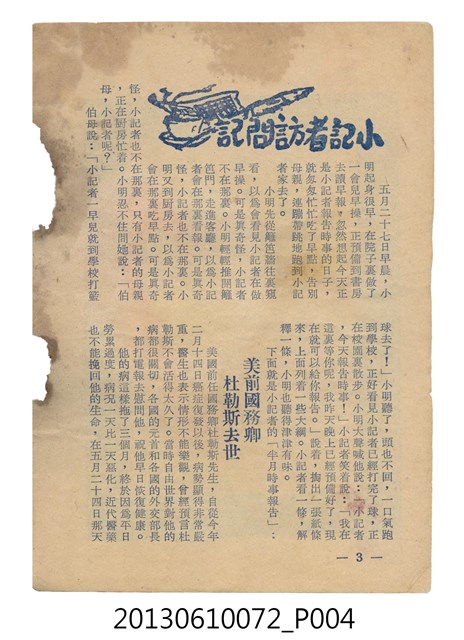 小記者訪問記
五月二十七日早晨,小
明起身很早,在院子裏做了
一會兒早操,正預備到書房
去讀早報,忽然想起今天正
是小記者報告時事的日子,
就忽忽忙忙吃了早點,告別
母親,連蹦帶跳地跑到小記
者家去了。
小明先從籬笆牆往裏窺
看,以為會看見小記者在做
早操。可是真奇怪,小記者
不在那裏。小明輕輕推開籬
笆門,走進客廳,以為小記
者會在那裏看報。可是真奇
怪,小記者也不在那裏。小
明又到厨房去,以為小記者
會在那裏吃早點。可是真奇
怪,小記者也不在那裏,只有小記者的母親
,正在厨房忙着。小明忍不住問她說:「伯
母,小記者呢?」
伯母說:「小記者一早兒就到學校打籃
球去了!」小明聽了,頭也不回,一口氣跑
到學校,正好看見小記者已經打完了球,正
在校園裏散步。小明大聲喊他說:「小記者
,今天報告時事!」小記者笑着說:「我在
這裏等你呢,我昨天晚上已經預備好了,現
在就可以給你報告。」說着,掏出一張紙條
來,上面列着一些大綱。小記者看一條,解
釋一條,小明也聽得津津有味。
下面就是小記者的「半月時事報告」:
美前國務卿
杜勒斯去世
美國前任國務卿杜勒斯先生,自從今年
二月十四日癌症復發以後,病勢顯得非常嚴
重,醫生也表示情形不能樂觀,曾經預言杜
勒斯不會活得太久了。當時自由世界對他的
病都很關切,各國的元首和各國的外交部長
,都打電報去慰問他,祝他早日恢復健康。
他的病這樣拖了三個月,終於因為平日
勞累過度,病況一天比一天惡化,近代醫藥
也不能挽回他的生命,在五月二十四日那天
— 3 —
20130610072_P004